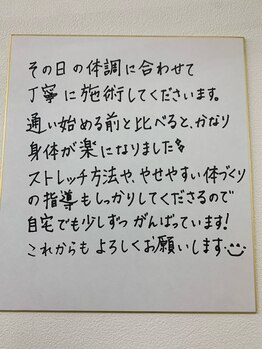 その日の体調に合わせて
丁寧に施術してくださいます。
通い始める前と比べると、かなり
身体が楽になりました
ストレッチ方法や、やせやすい体づくり
の指導もしっかりしてくださるので
自宅でも少しずつがんばっています!
これからもよろしくお願いします